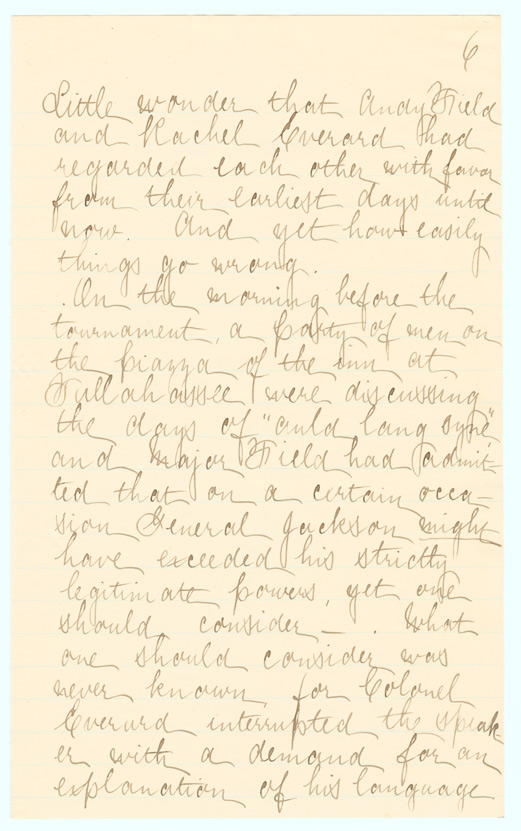 6
Little wonder that Andy Field
and Rachel Everard had
regarded each other with favor
from their earliest days until
now. And yet how easily
things go wrong.
On the morning before the
tournament, a party of men on
the piazza of the inn at
Tullahassee were discussing
the days of "auld lang syne",
and Major Field had admit-
ted that on a certain occa-
sion General Jackson might
have exceeded his strictly
legitimate powers, yet one
should consider — . What
one should consider was
never known for Colonel
Everard interrupted the speak
er with a demand for an
explanation of his language